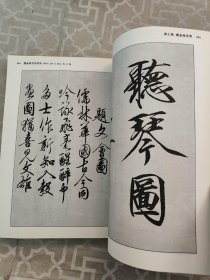 題文會圖
儒林華國古今同
吟詠飛毫醒醉中
多士作新知入彀
畫圖猶喜見文雄
聽琴圖